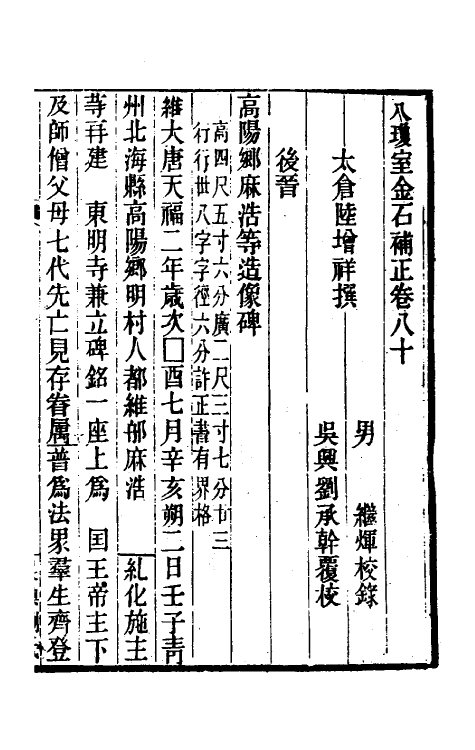 八瓊室金石補正卷八十
太倉陸增祥撰
男　繼煇校錄
吳興劉承幹覆校
後晉
高陽鄉麻浩等造像碑
高四尺五寸六分廣二尺三寸七分廿三
行行卅八字字徑六分許正書有界格
維大唐天福二年歲次囗酉七月辛亥朔二日壬子青
州北海縣高陽鄉明村人都維郍麻浩　糺化施主
等再建　東明寺兼立碑銘一座上爲　囯王帝主下
及師僧父母七代先亡見存眷屬普爲法界羣生齊登